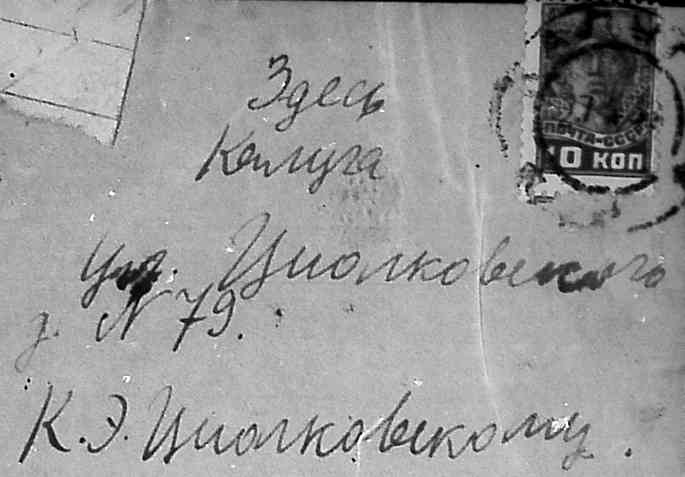 Здесь
Калуга
ПОЧТА-СССР
10 КОП
ул. Циолковского
д. N 79.
К. Э. Циолковскому.